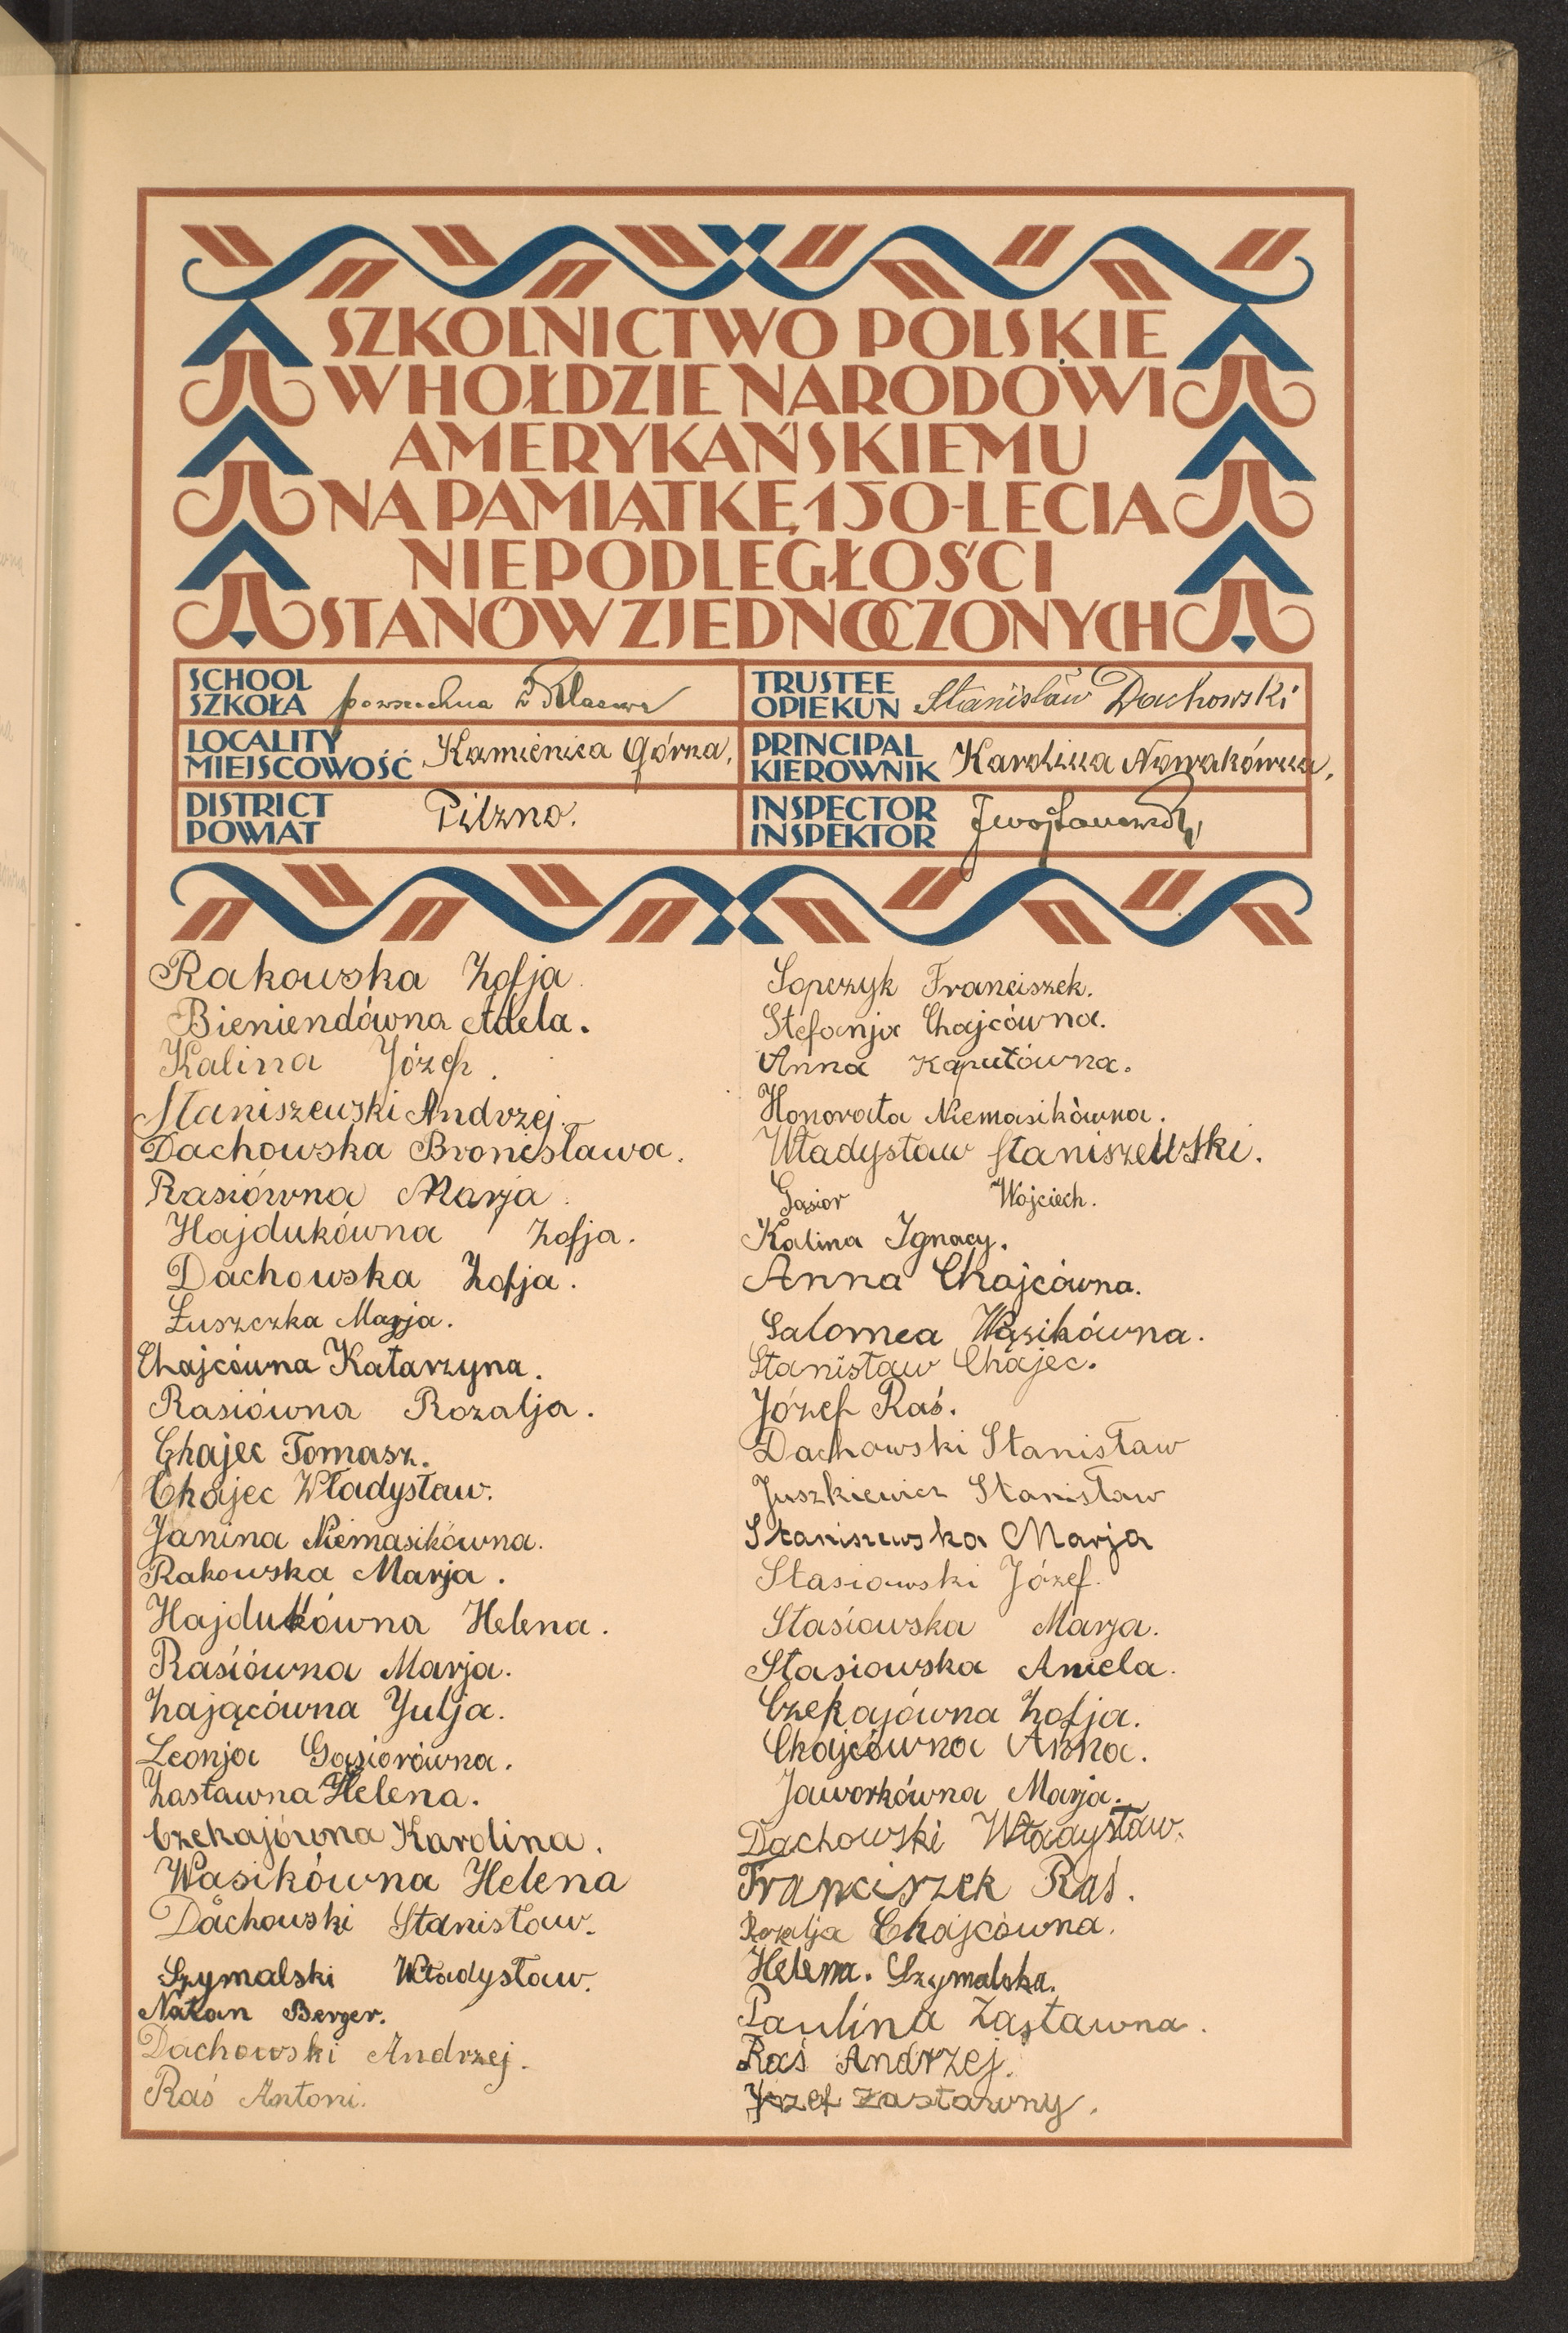 SZKOLNICTWO POLSKIE
W HOŁDZIE NARODOWI
AMERYKAŃSKIEMU
NA PAMIĄTKĘ 150-LECIA
NIEPODLEGŁOŚCI
STANÓW ZJEDNOCZONYCH
SCHOOL
SZKOŁA powszechna 2 klasowa
TRUSTEE
OPIEKUN Stanisław Dachowski
LOCALITY
MIEJSCOWOŚĆ Kamienica Górna,
PRINCIPAL
KIEROWNIK Karolina Nowakówna,
DISTRICT
POWIAT Pilzno.
INSPECTOR
INSPEKTOR
Rakowska Zofja.
Bieniendówna Adela.
Kalina Józef.
Staniszewski Andrzej.
Dachowska Bronisława.
Rasiówna Marja.
Hajdukówna Zofja.
Dachowska Zofja.
Łuszczka Marja.
Chajcówna Katarzyna.
Rasiówna Rozalja.
Chajec Tomasz.
Chajec Władysław.
Janina Niemasikówna.
Rakowska Marja.
Hajdukówna Helena.
Rasiówna Marja.
Zającówna Julja.
Leonja Gąsiorówna.
Zastawna Helena.
Czekajówna Karolina.
Wasikówna Helena
Dachowski Stanisław.
Szymalski Władysław.
Natan Berger.
Dachowski Andrzej.
Raś Antoni.
Sopczyk Franciszek.
Stefanja Chajcówna.
Anna Kaputówna.
Honorata Niemasikówna.
Władysław Staniszewski.
Gąsior Wojciech.
Kalina Ignacy.
Anna Chajcówna.
Salomea Wąsikówna.
Stanisław Chajec.
Józef Raś.
Dachowski Stanisław
Juszkiewicz Stanisław
Staniszewska Marja
Stasiowski Józef.
Stasiowska Marja.
Stasiowska Aniela.
Czekajówna Zofja.
Chajcówna Anna.
Jaworkówna Marja.
Dachowski Władysław.
Franciszek Raś.
Rozalja Chajcówna.
Helena. Szymalska.
Paulina Zastawna.
Raś Andrzej.
Józef Zastawny.